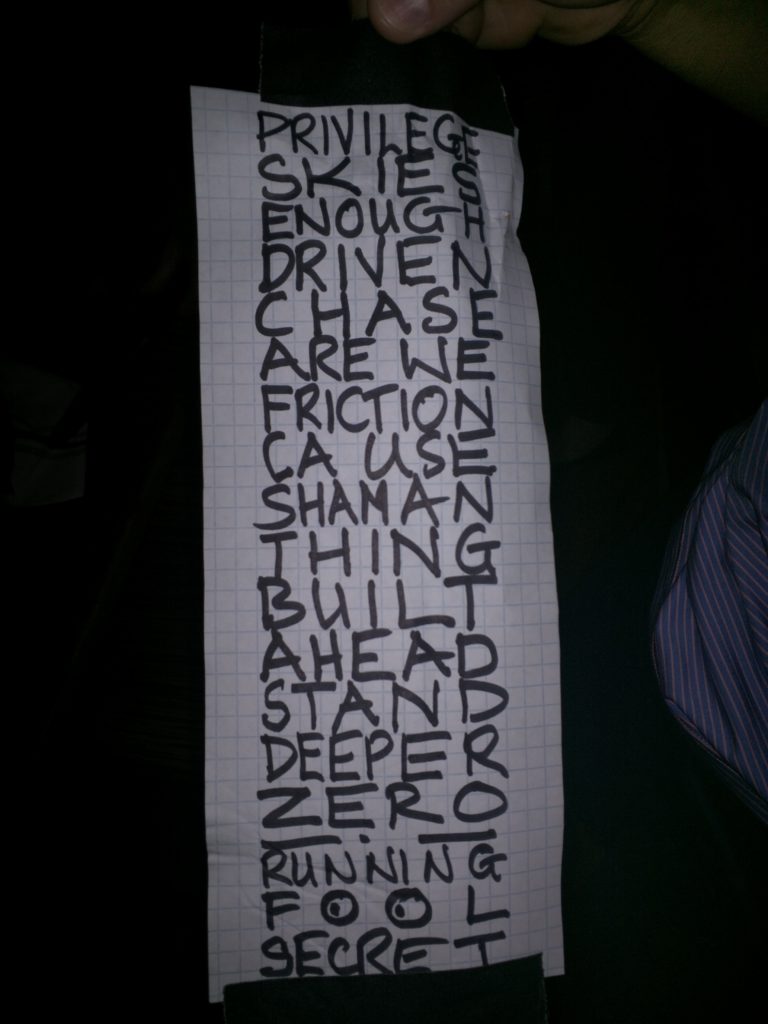 PRIVILEGE
SKIES
ENOUGH
DRIVEN
CHASE
ARE WE
FRICTION
CAUSE
SHAMAN
THING
BUILT
AHEAD
STAND
DEEPER
ZERO
RUNNING
FOOL
SECRET